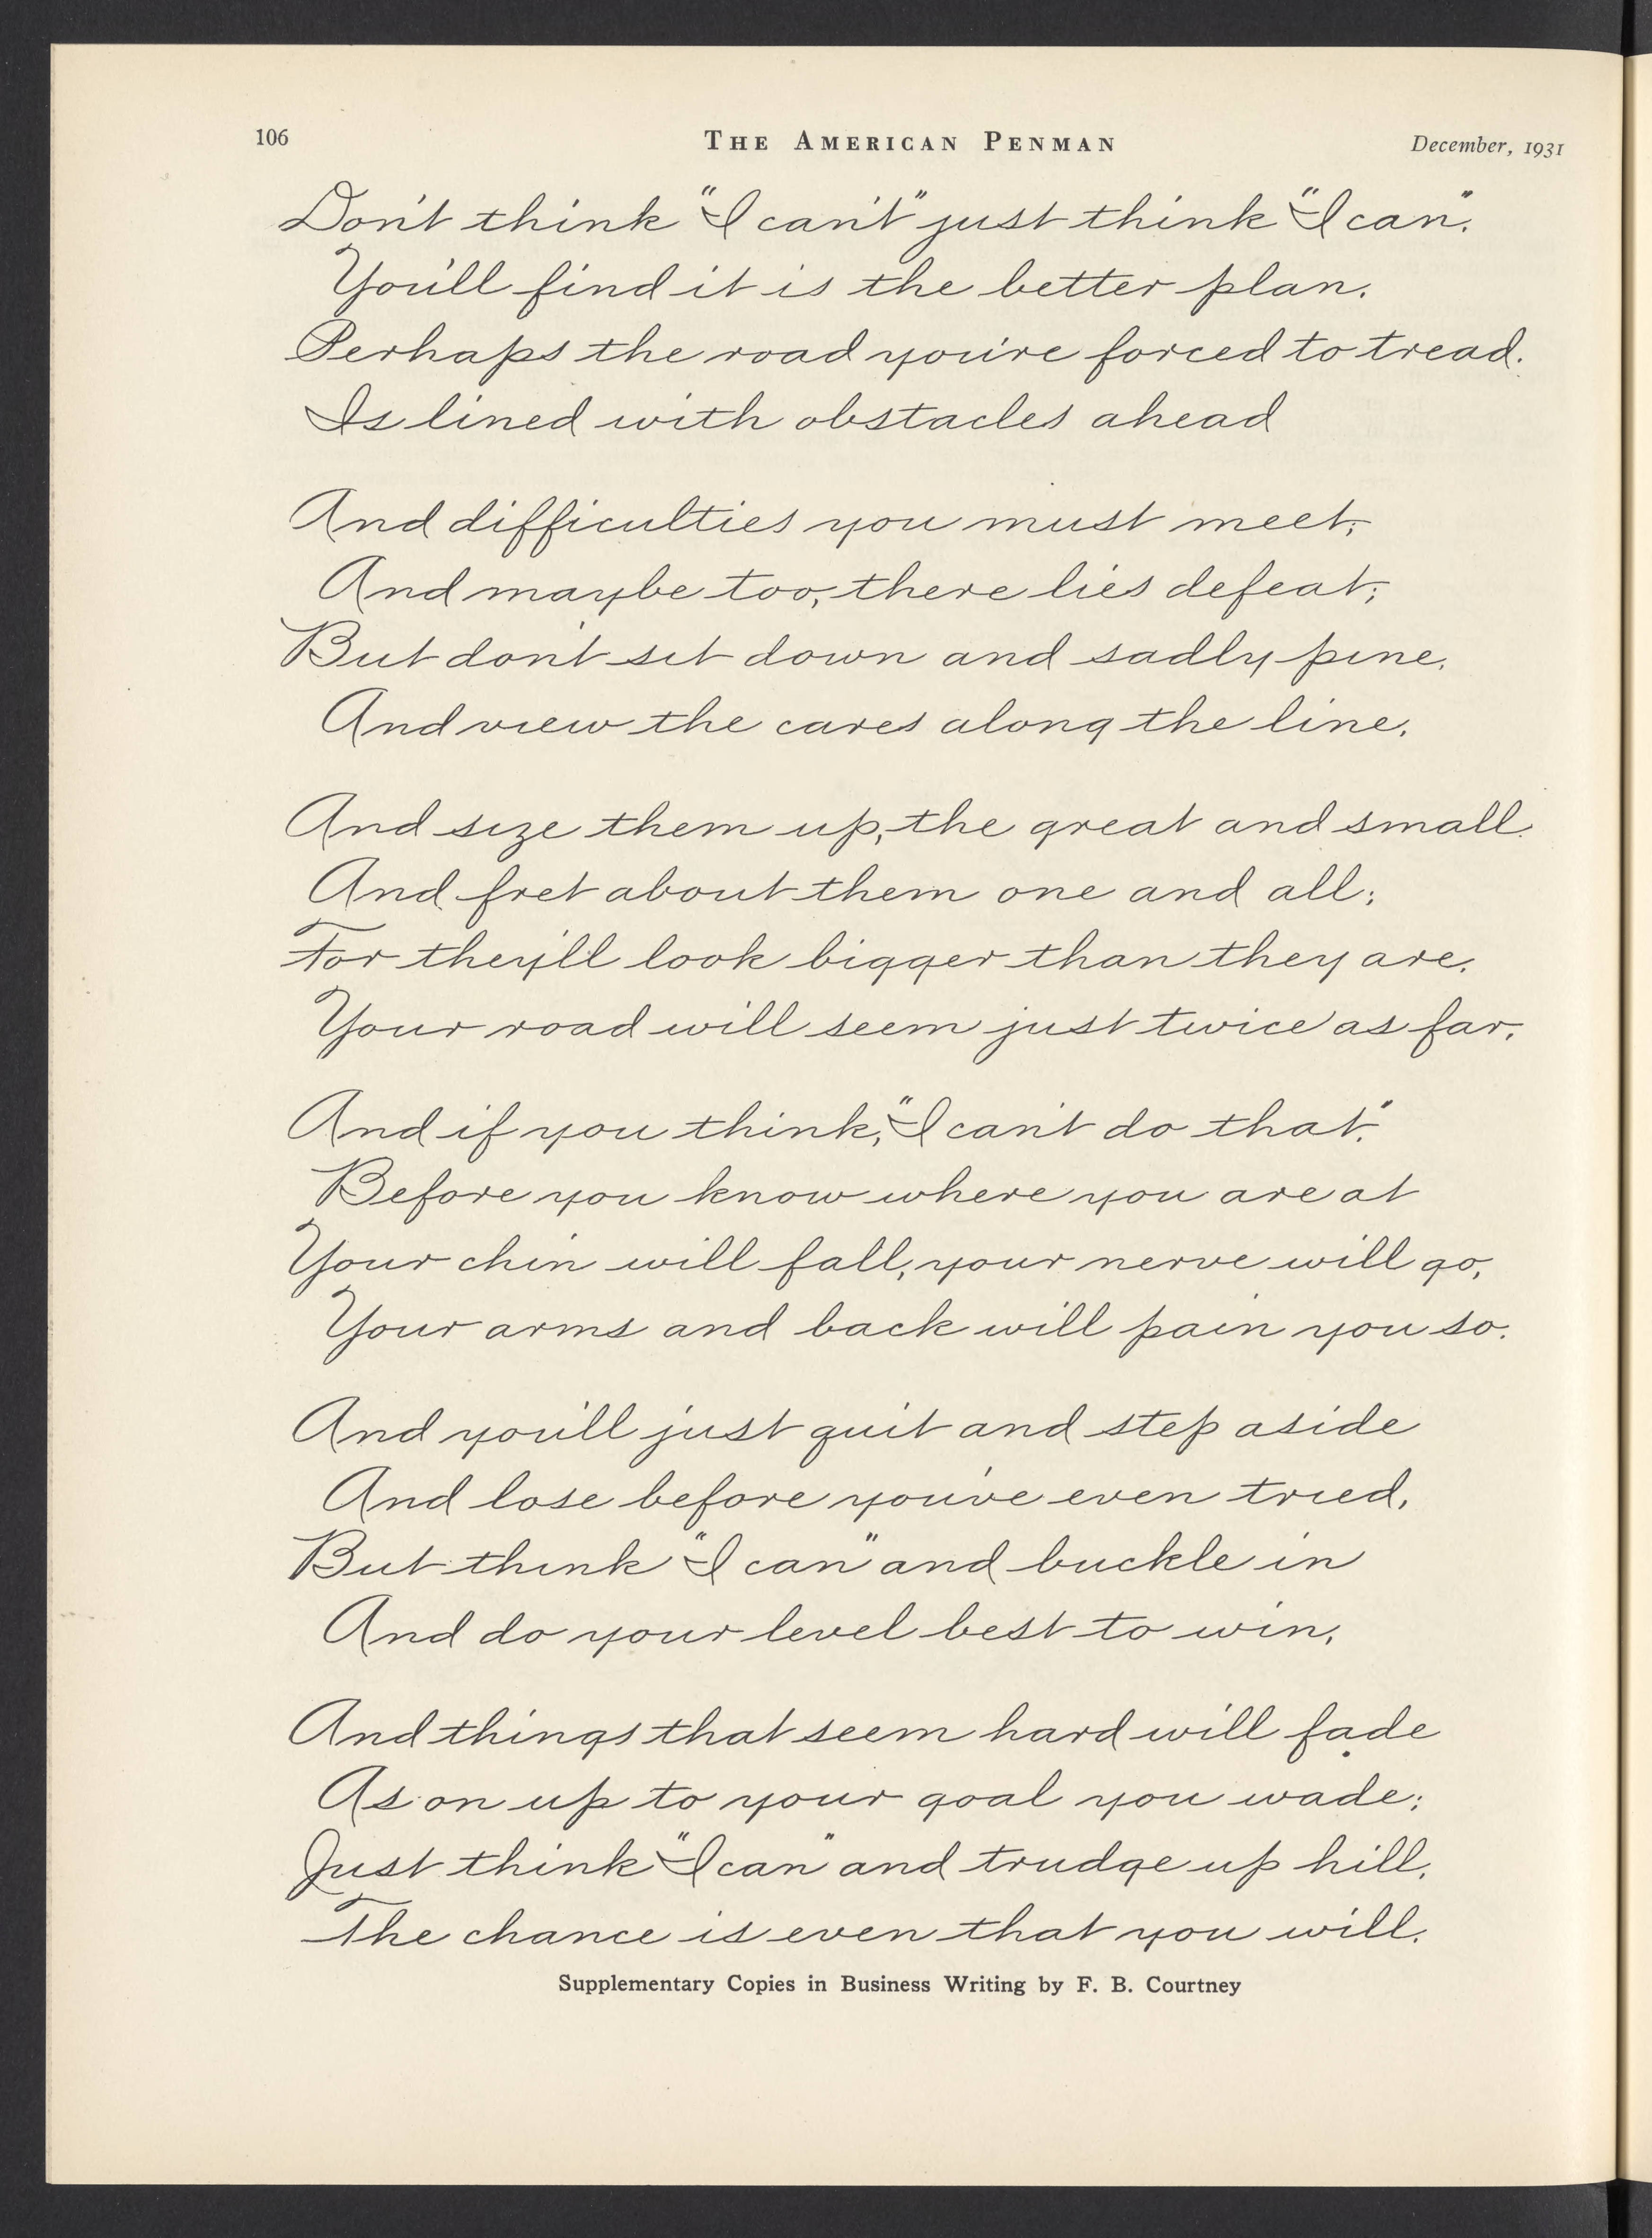 106 THE AMERICAN PENMAN December, 1931
Don't think "I can't" just think "I can".
You'll find it is the better plan.
Perhaps the road you're forced to tread.
Is lined with obstacles ahead
And difficulties you must meet;
And maybe too, there lies defeat;
But don't sit down and sadly pine.
And view the cares along the line.
And size them up, the great and small.
And fret about them one and all;
For they'll look bigger than they are.
Your road will seem just twice as far.
And if you think, "I can't do that."
Before you know where you are at
Your chin will fall, your nerve will go,
Your arms and back will pain you so.
And you'll just quit and step aside
And lose before you've even tried.
But think "I can" and buckle in
And do your level best to win,
And things that seem hard will fade
As on up to your goal you wade;
Just think "I can" and trudge up hill.
The chance is even that you will.
Supplementary Copies in Business Writing by F. B. Courtney